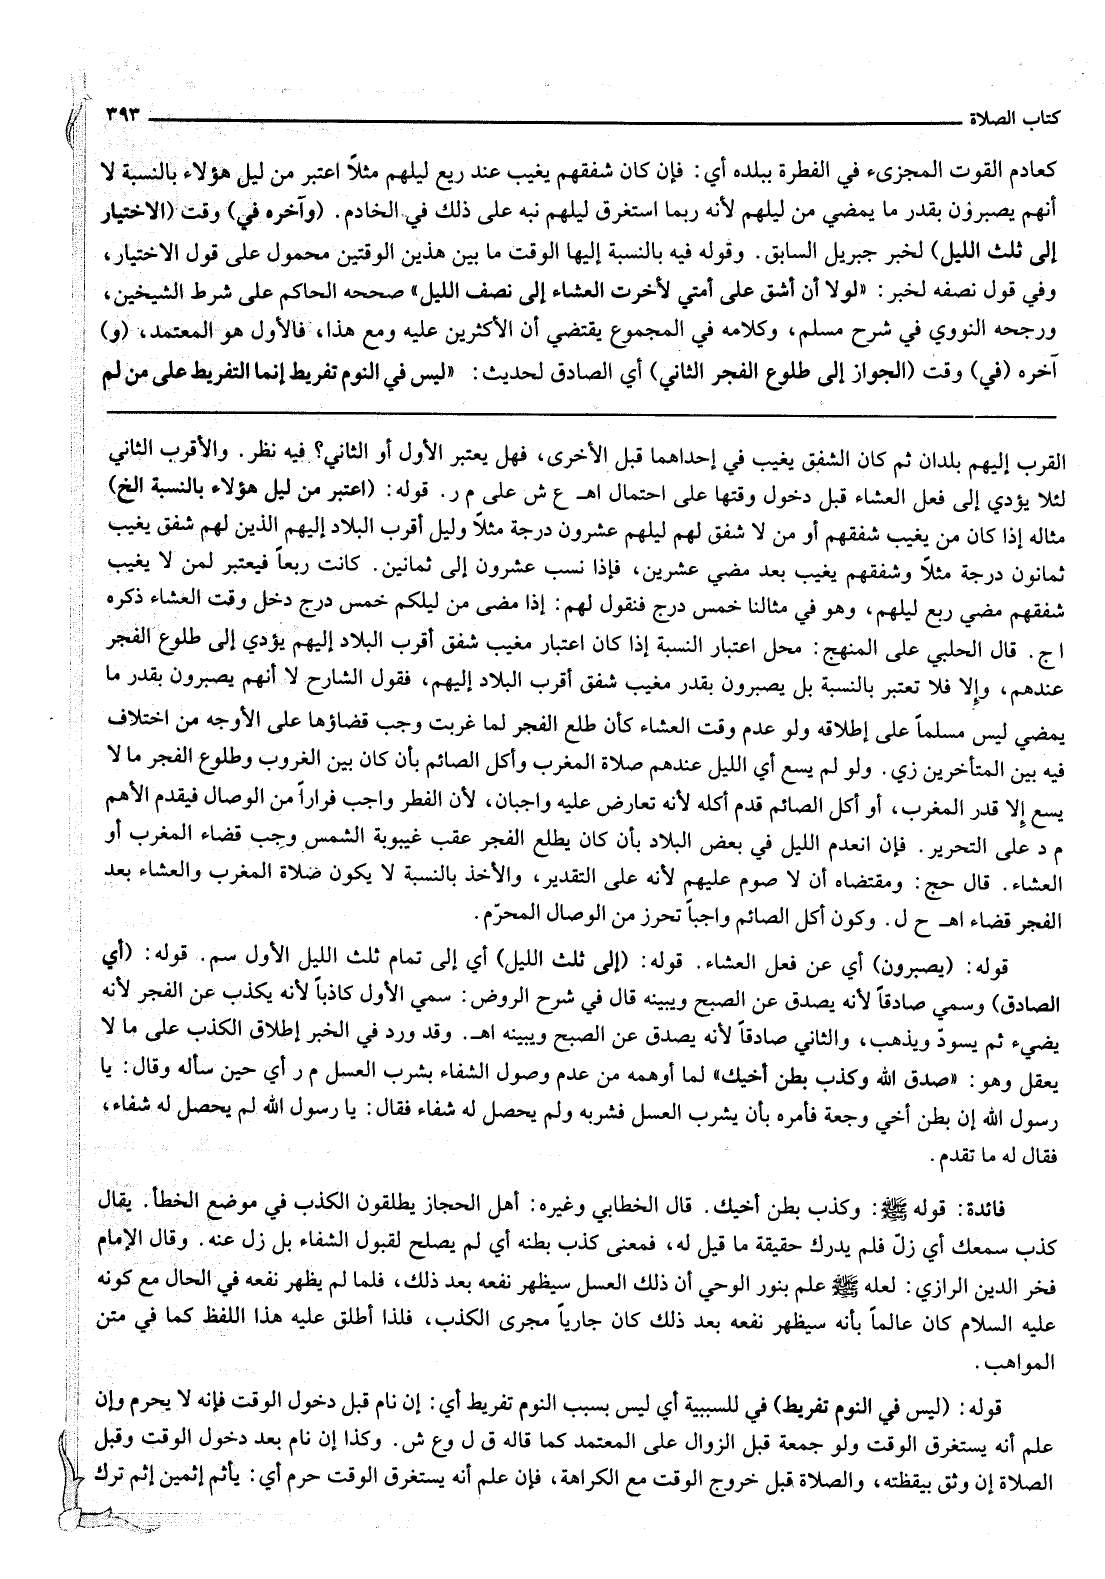 كتاب الصلاة ٣٩٣
كعادم القوت المجزىء في الفطرة ببلده أي: فإن كان شفقهم يغيب عند ربع ليلهم مثلاً اعتبر من ليل هؤلاء بالنسبة لا
أنهم يصبرون بقدر ما يمضي من ليلهم لأنه ربما استغرق ليلهم نبه على ذلك في الخادم. (وآخره في) وقت (الاختيار
إلى ثلث الليل) لخبر جبريل السابق. وقوله فيه بالنسبة إليها الوقت ما بين هذين الوقتين محمول على قول الاختيار،
وفي قول نصفه لخبر: «لولا أن أشق على أمتي لأخرت العشاء إلى نصف الليل» صححه الحاكم على شرط الشيخين،
ورجحه النووي في شرح مسلم، وكلامه في المجموع يقتضي أن الأكثرين عليه ومع هذا، فالأول هو المعتمد، (و)
آخره (في) وقت (الجواز إلى طلوع الفجر الثاني) أي الصادق لحديث: «ليس في النوم تفريط إنما التفريط على من لم
القرب إليهم بلدان ثم كان الشفق يغيب في إحداهما قبل الأخرى، فهل يعتبر الأول أو الثاني؟ فيه نظر. والأقرب الثاني
لئلا يؤدي إلى فعل العشاء قبل دخول وقتها على احتمال اهـ ع ش على م ر. قوله: (اعتبر من ليل هؤلاء بالنسبة الخ)
مثاله إذا كان من يغيب شفقهم أو من لا شفق لهم ليلهم عشرون درجة مثلاً وليل أقرب البلاد إليهم الذين لهم شفق يغيب
ثمانون درجة مثلاً وشفقهم يغيب بعد مضي عشرين، فإذا نسب عشرون إلى ثمانين. كانت ربعاً فيعتبر لمن لا يغيب
شفقهم مضي ربع ليلهم، وهو في مثالنا خمس درج فنقول لهم: إذا مضى من ليلكم خمس درج دخل وقت العشاء ذكره
ا ج. قال الحلبي على المنهج: محل اعتبار النسبة إذا كان اعتبار مغيب شفق أقرب البلاد إليهم يؤدي إلى طلوع الفجر
عندهم، وإلا فلا تعتبر بالنسبة بل يصبرون بقدر مغيب شفق أقرب البلاد إليهم، فقول الشارح لا أنهم يصبرون بقدر ما
يمضي ليس مسلماً على إطلاقه ولو عدم وقت العشاء كأن طلع الفجر لما غربت وجب قضاؤها على الأوجه من اختلاف
فيه بين المتأخرين زي. ولو لم يسع أي الليل عندهم صلاة المغرب وأكل الصائم بأن كان بين الغروب وطلوع الفجر ما لا
يسع إلا قدر المغرب، أو أكل الصائم قدم أكله لأنه تعارض عليه واجبان، لأن الفطر واجب فراراً من الوصال فيقدم الأهم
م د على التحرير. فإن انعدم الليل في بعض البلاد بأن كان يطلع الفجر عقب غيبوبة الشمس وجب قضاء المغرب أو
العشاء. قال حج: ومقتضاه أن لا صوم عليهم لأنه على التقدير، والأخذ بالنسبة لا يكون صلاة المغرب والعشاء بعد
الفجر قضاء اهـ ح ل. وكون أكل الصائم واجباً تحرز من الوصال المحرّم.
قوله: (يصبرون) أي عن فعل العشاء. قوله: (إلى ثلث الليل) أي إلى تمام ثلث الليل الأول سم. قوله: (أي
الصادق) وسمي صادقاً لأنه يصدق عن الصبح ويبينه قال في شرح الروض: سمي الأول كاذباً لأنه يكذب عن الفجر لأنه
يضيء ثم يسودّ ويذهب، والثاني صادقاً لأنه يصدق عن الصبح ويبينه اهـ. وقد ورد في الخبر إطلاق الكذب على ما لا
يعقل وهو: «صدق الله وكذب بطن أخيك» لما أوهمه من عدم وصول الشفاء بشرب العسل م ر أي حين سأله وقال: يا
رسول الله إن بطن أخي وجعة فأمره بأن يشرب العسل فشربه ولم يحصل له شفاء فقال: يا رسول الله لم يحصل له شفاء،
فقال له ما تقدم.
فائدة: قوله ﷺ: وكذب بطن أخيك. قال الخطابي وغيره: أهل الحجاز يطلقون الكذب في موضع الخطأ. يقال
كذب سمعك أي زلّ فلم يدرك حقيقة ما قيل له، فمعنى كذب بطنه أي لم يصلح لقبول الشفاء بل زل عنه. وقال الإمام
فخر الدين الرازي: لعله ﷺ علم بنور الوحي أن ذلك العسل سيظهر نفعه بعد ذلك، فلما لم يظهر نفعه في الحال مع كونه
عليه السلام كان عالماً بأنه سيظهر نفعه بعد ذلك كان جارياً مجرى الكذب، فلذا أطلق عليه هذا اللفظ كما في متن
المواهب.
قوله: (ليس في النوم تفريط) في للسببية أي ليس بسبب النوم تفريط أي: إن نام قبل دخول الوقت فإنه لا يحرم وإن
علم أنه يستغرق الوقت ولو جمعة قبل الزوال على المعتمد كما قاله ق ل وع ش. وكذا إن نام بعد دخول الوقت وقبل
الصلاة إن وثق بيقظته، والصلاة قبل خروج الوقت مع الكراهة، فإن علم أنه يستغرق الوقت حرم أي: يأثم إثمين إثم ترك